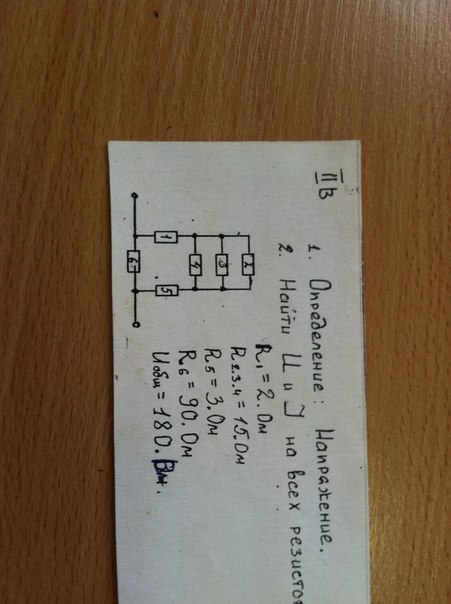 IIв
1. Определение: Напряжение.
2. Найти U и J на всех
1
2
3
4
5
6
R₁ = 2.Ом
R₂.₃.₄ = 15.Ом
R₅ = 3.Ом
R₆ = 90.Ом
Uобщ = 180.